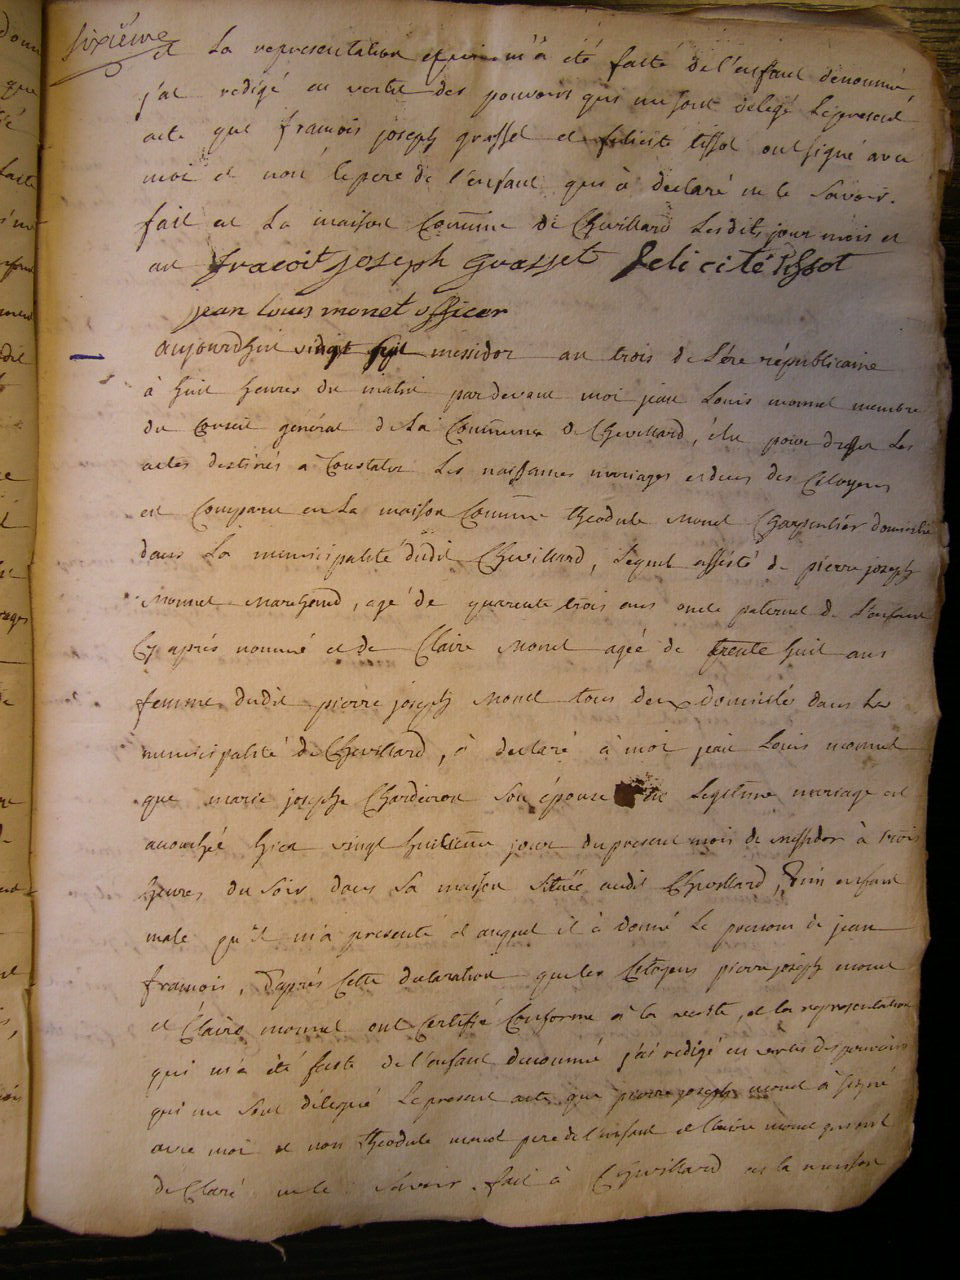 sixième
et la representation qui m'a été faite de l'enfant denommé,
j'ai redigé en vertu des pouvoirs qui me sont delegé le present
acte que francois joseph grasset et felicité tissot ont signé avec
moi et non le pere de l'enfant qui à declaré ne le savoir.
fait en la maison Commune de Chevillard lesdits jour mois et
an fracoit joseph Grasset felicité tissot
jean louis monet officer
aujourdhui vingt messidor an trois de l'ére républicaine
à huit heures du matin par devant moi jean Louis monnet membre
du Conseil général de la Commune de Chevillard, élu pour dresser les
actes destinés a Constater les naissances mariages et deces des Citoyens
est Comparu en la maison Commune theodule monet Charpentier domicilié
dans la municipalité dudit Chevillard, lequel assisté de pierre joseph
monnet marchand, agé de quarente trois ans oncle paternel de l'enfant
Cy aprés nommé et de Claire monet agée de trente huit ans
femme dudit pierre joseph monet tous deux domicilié dans la
municipalité de Chevillard, à declaré à moi jean Louis monnet
que marie josephe son épouse legitime mariage est
accouchée hier vingt huitieme jour du present mois de messidor à trois
heures du soir dans sa maison située audit Chevillard, d'un enfant
male qu'il m'a presenté et auquel il à donné le prenom de jean
francois, d'aprés Cette declaration que les Citoyens pierre joseph monet
et Claire monnet ont Certifié Conforme à la verité, et la representation
qui m'a été faite de l'enfant denommé j'ai redigé en vertu des pouvoirs
qui me sont délegué le present acte que pierre joseph monet à signé
avec moi et non theodule monet pere de l'enfant et Claire monet qui ont
declaré ne le savoir. fait à Chevillard en la maison